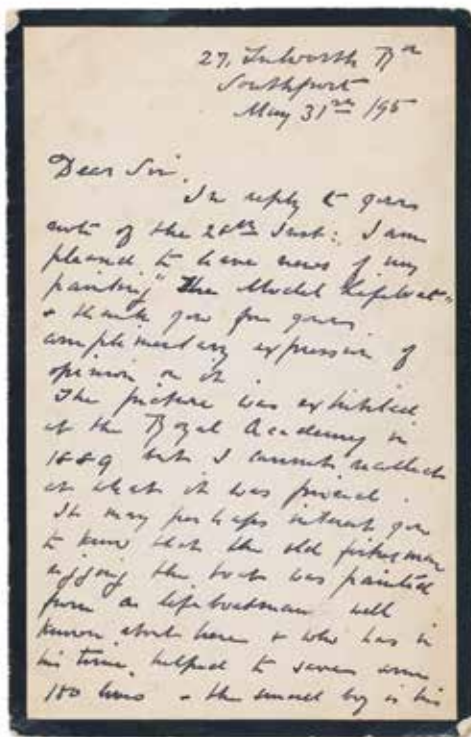 27, Tulworth Rd
Southport
May 31st
Dear Sir.
In reply to yours
note of the 28th Inst: I am
pleased to have news of my
painting "The Model Lifeboat"
& thank you for yours
complimentary expression of
opinion on it.
The picture was exhibited
at the Royal Academy in
1889 but I cannot recollect
at what it was priced.
It may perhaps interest you
to know that the old fisherman
rigging the boat was painted
from a lifeboatman well
known about here & who has in
his time, helped to save some
180 lives & the small boy is his